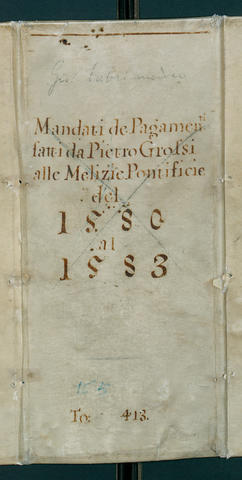 Mandati de Pagamenti
fatti da Pietro Grossi
alle Melizie Pontificie
del
1580
al
1583
To: 413.